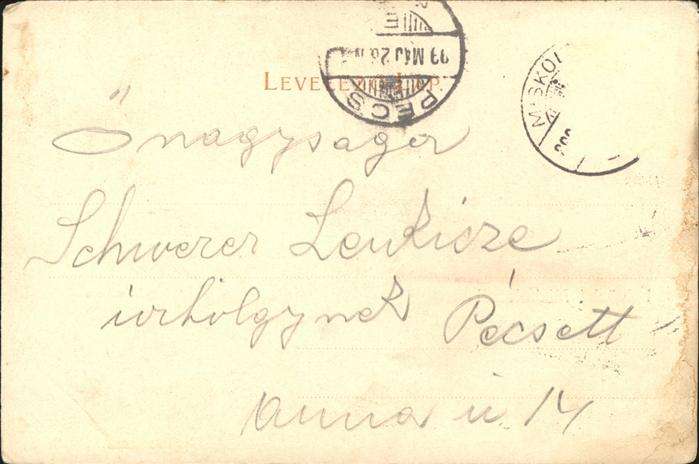 PÉCS
99 MÁJ 26
MISKOL
LEVELEZŐ-LAP.
Önagysága
Schwerer Lenkicze
úrhölgynek Pécsett
Anna u 14